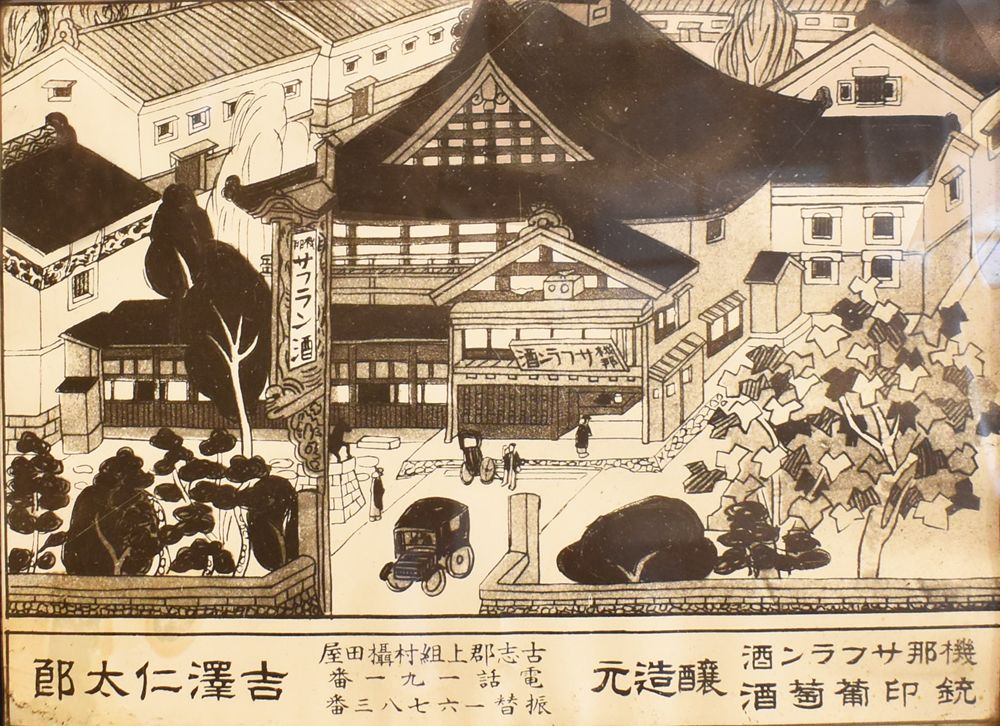 機那
サフラン酒
機那サフラン酒
機那サフラン酒
銃印葡萄酒
釀造元
古志郡上組村攝田屋
電話一九一番
振替一六七八三番
吉澤仁太郎